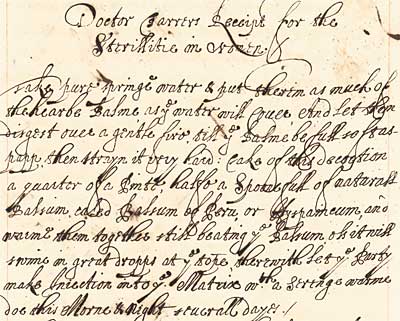 Doctor Carrers Receipt for the
Sterillitie in Women.
Take pure springe water & put therein as much of
the hearbe Balme as ye water will Cover And let them
digest over a gentle fire till ye Balme be full soft as
papp, then strayn it very hard: take of this decoction
a quarter of a Pinte, halfe a Spoonefull of naturall
Balsum, called Balsum of Peru, or and
warme them together still beating ye Balsum els it will
swime in great dropps at ye tope, therewith let ye Party
make Iniection into ye Matrix wth a Serenge warme
doe this Morne & Night severall dayes./